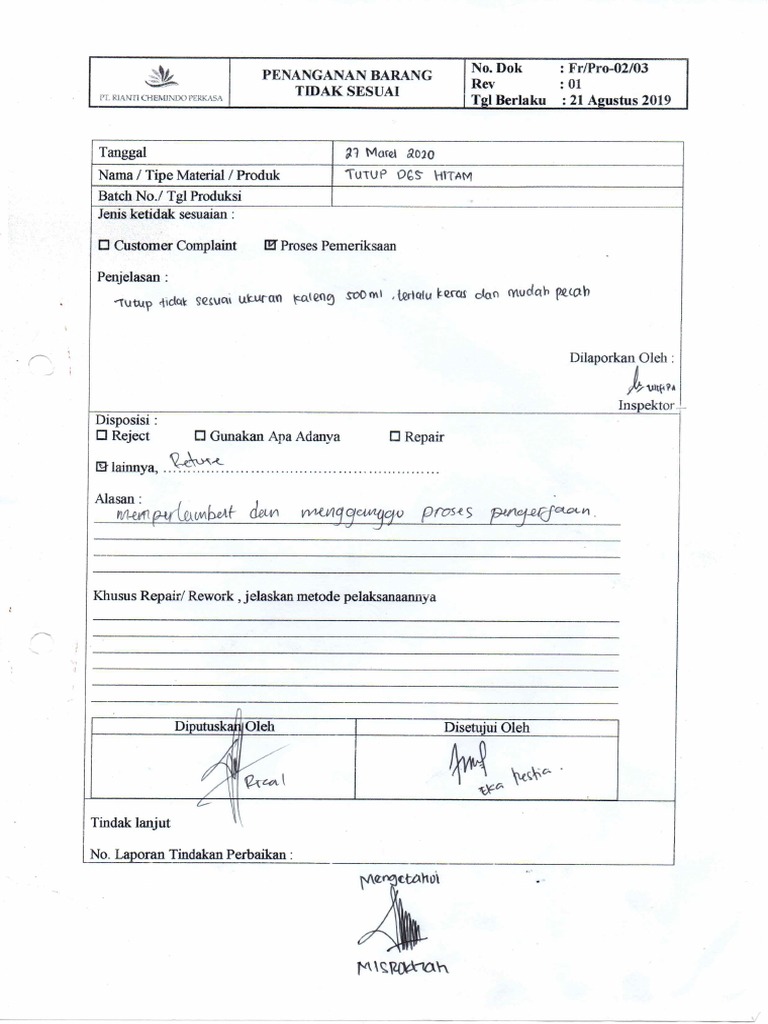 PT. RIANTI CHEMINDO PERKASA
PENANGANAN BARANG
TIDAK SESUAI
No. Dok : Fr/Pro-02/03
Rev : 01
Tgl Berlaku : 21 Agustus 2019
Tanggal 27 Maret 2020
Nama / Tipe Material / Produk TUTUP D65 HITAM
Batch No./ Tgl Produksi
Jenis ketidak sesuaian :
Customer Complaint Proses Pemeriksaan
Penjelasan :
Tutup tidak sesuai ukuran kaleng 500ml, terlalu keras dan mudah pecah
Dilaporkan Oleh :
Inspektor
Disposisi :
Reject Gunakan Apa Adanya Repair
lainnya, Reture
Alasan :
memperlambat dan mengganggu proses pengerjaan.
Khusus Repair/ Rework , jelaskan metode pelaksanaannya
Diputuskan Oleh Disetujui Oleh
Rical Eka Restia .
Tindak lanjut
No. Laporan Tindakan Perbaikan :
Mengetahui
MISROKHAH